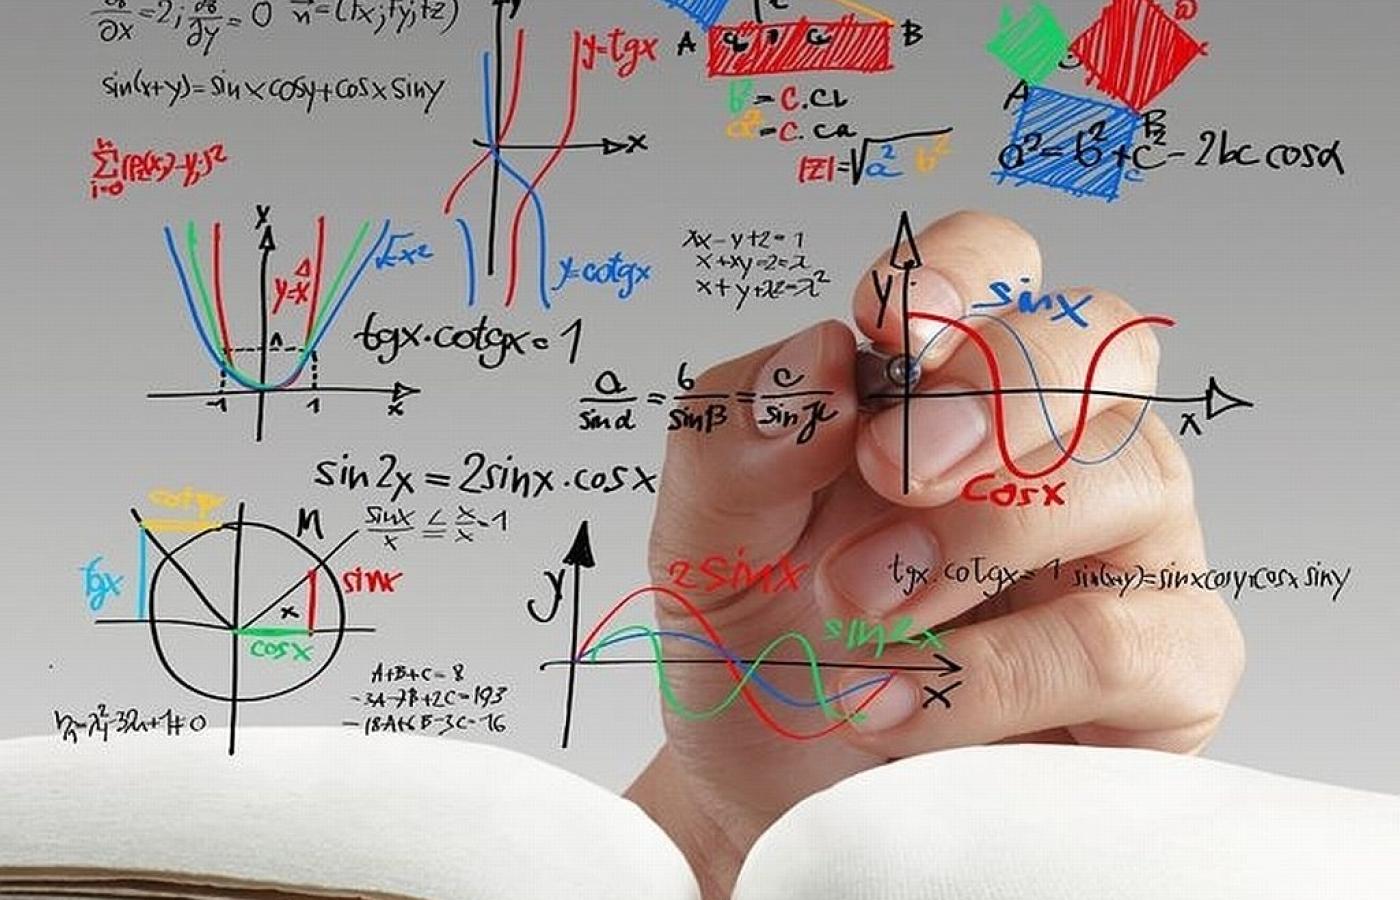 ∂x = 2; ∂y = 0 n = (fx; fy; fz)
sin(x+y)=sinxcosy+cosx siny
y
y=tgx
x
y=cotgx
A B
= c.cb
= c.ca
|z|=√a² b²
A B
a²=b²+c²-2bc cosα
y
y=x
√-x²
-1 1 x
tgx.cotgx=1
xx-y+z=1
x+xy-z=λ
x+y+λz=λ²
a/sinα = b/sinβ = c/sin
y
sinx
x
cosx
sin2x=2sinx.cosx
sinx/x ≤ x/x=1
cotgx
M
tgx
sinx
x
cosx
y
2sinx
sin2x
x
tgx.cotgx=1
sin(x+y)=sinxcosy+cosx siny
A+B+C=8
-3A-7B+2C=193
-18A+6B-3C=-16